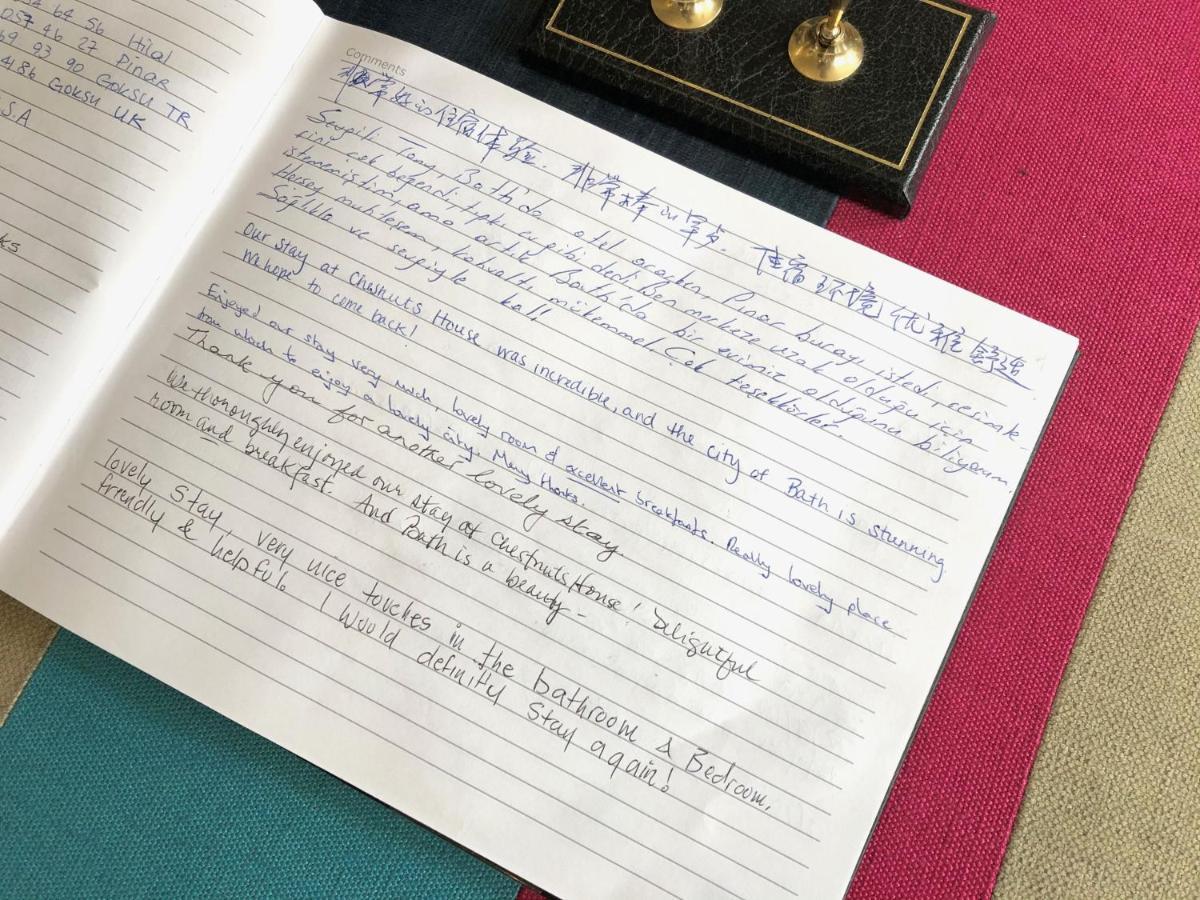 54 64 56 Hilal
057 46 27 Pinar
69 93 90 GOKSU TR
4186 GOKSU UK
S.A
ks
Comments
非常好的住宿体验. 非常棒的早点. 住宿环境优雅舒适
Sevgili Tony, Bath'da otel ararken, Pinar burayı istedi, resimle-
rini çok beğendi, tıpkı ev gibi dedi. Ben merkeze uzak olduğu için
istememiştim, ama artık Bath'da bir evimiz olduğunu biliyorum.
Herşey muhteşem, kahvaltı mükemmel. Çok teşekkürler.
Sağlıkla ve sevgiyle kal!
Our stay at Chesnuts House was incredible, and the city of Bath is stunning
We hope to come back!
Enjoyed our stay very much, lovely room & excellent breakfasts. Really lovely place
from which to enjoy a lovely city. Many thanks.
Thank you for another lovely stay
We thoroughly enjoyed our stay at Chestnuts House! Delightful
room and breakfast. And Bath is a beauty -
lovely stay, very nice touches in the bathroom & Bedroom,
friendly & helpful. I would definity stay again!